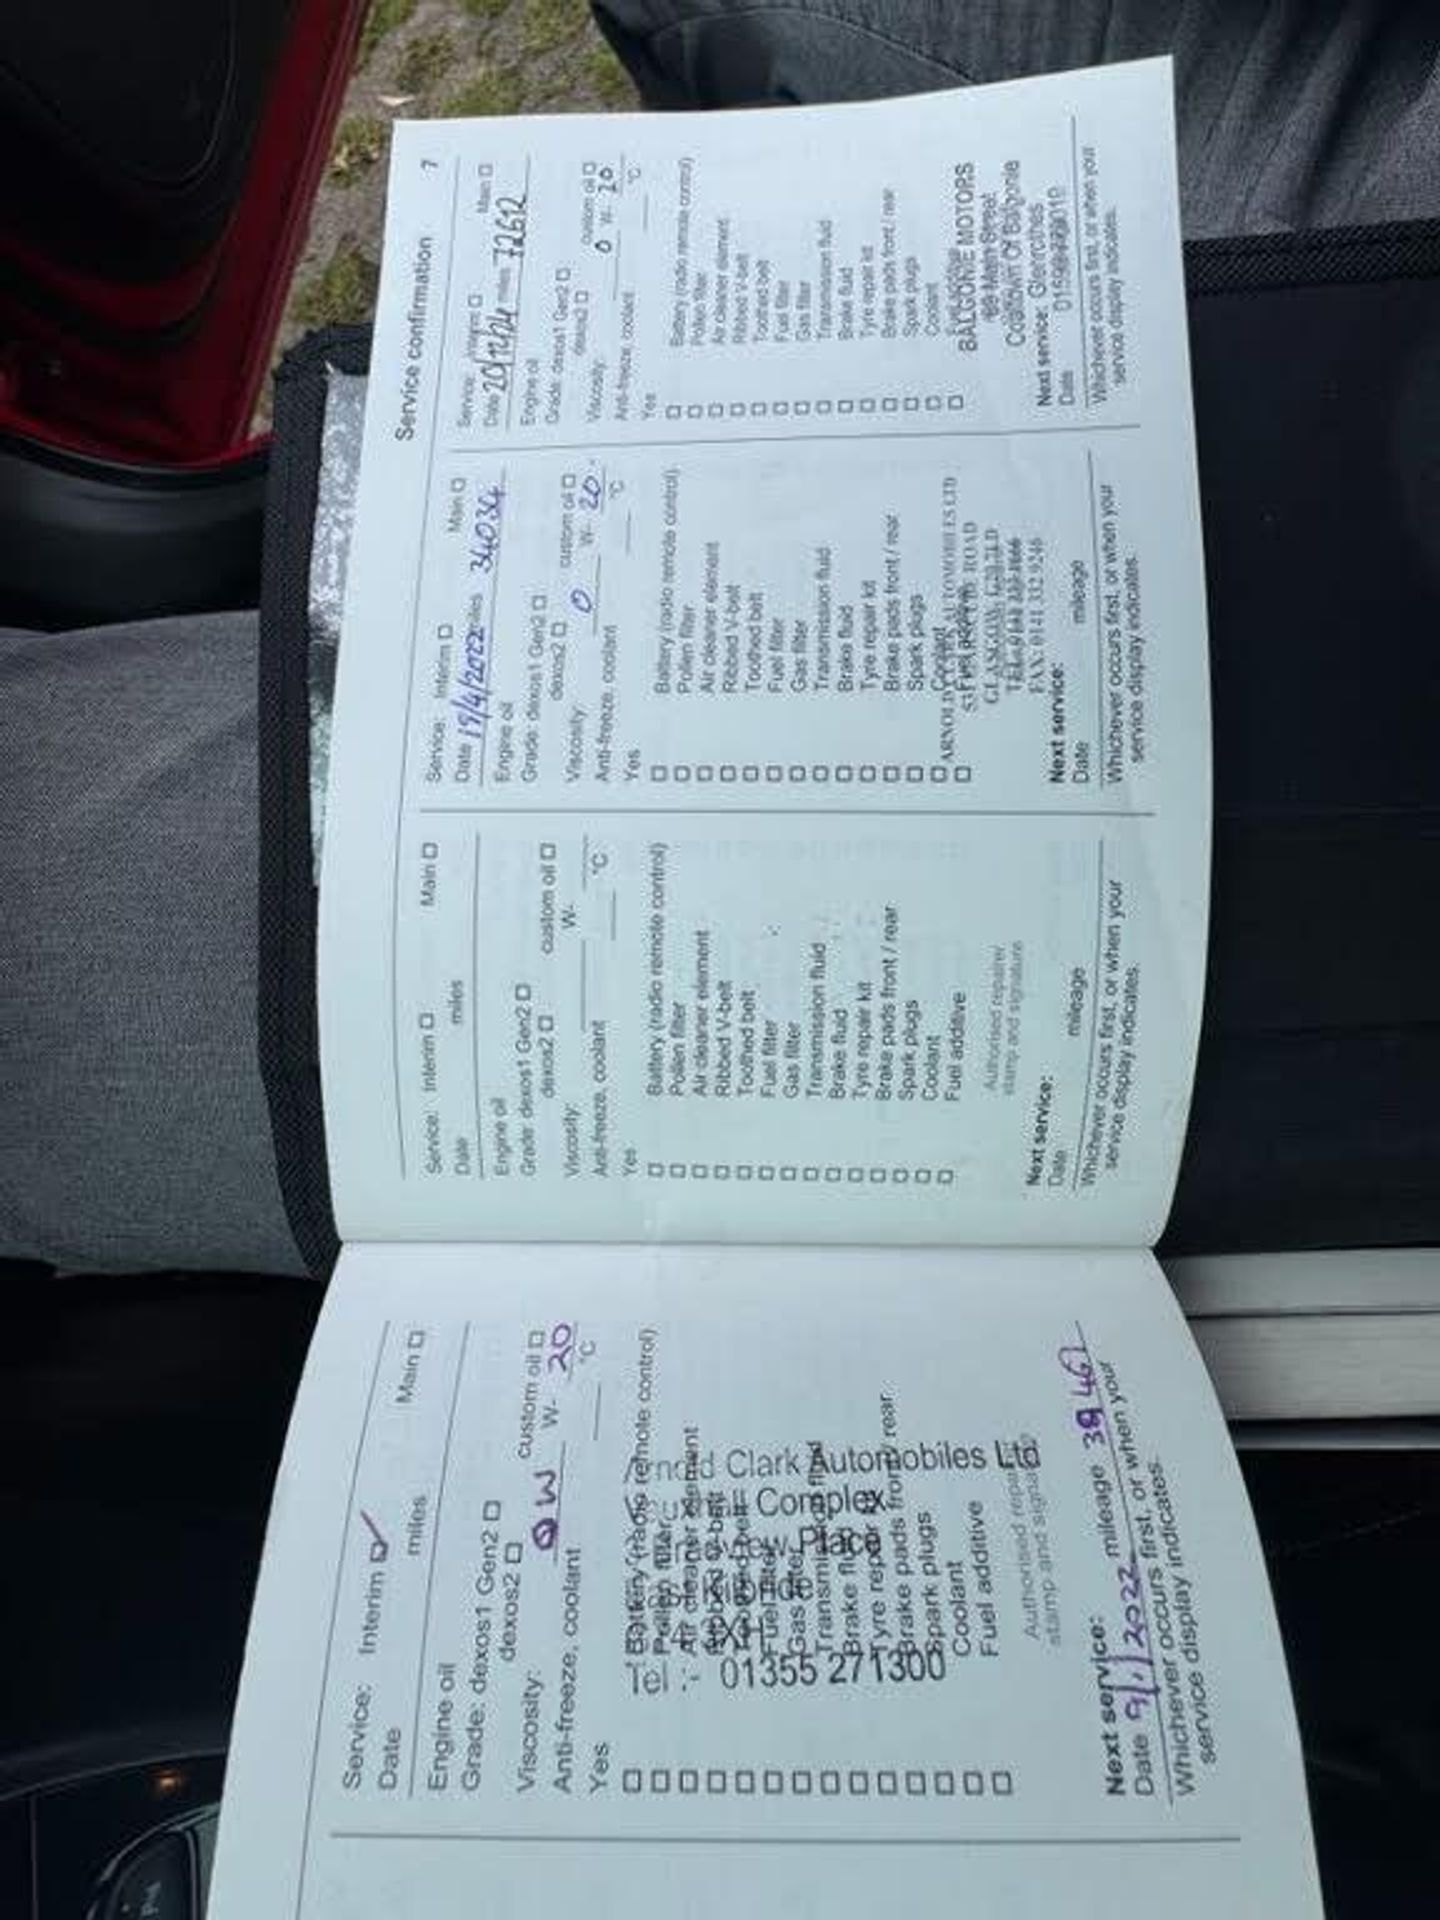 Service: Interim Main
Date miles
Engine oil
Grade: dexos1 Gen2
dexos2 custom oil
Viscosity: 0W W- 20
Anti-freeze, coolant °C
Yes
Battery (radio remote control)
Pollen filter
Air cleaner element
Ribbed V-belt
Toothed belt
Fuel filter
Gas filter
Transmission fluid
Brake fluid
Tyre repair kit
Brake pads front / rear
Spark plugs
Coolant
Fuel additive
Arnold Clark Automobiles Ltd
Complex
Place
01355 271300
Authorised repairer
stamp and signature
Next service:
Date 9/1/2022 mileage
Whichever occurs first, or when your
service display indicates.
Service confirmation 7
Service: Interim Main
Date miles
Engine oil
Grade: dexos1 Gen2
dexos2 custom oil
Viscosity: W-
Anti-freeze, coolant °C
Yes
Battery (radio remote control)
Pollen filter
Air cleaner element
Ribbed V-belt
Toothed belt
Fuel filter
Gas filter
Transmission fluid
Brake fluid
Tyre repair kit
Brake pads front / rear
Spark plugs
Coolant
Fuel additive
Authorised repairer
stamp and signature
Next service:
Date mileage
Whichever occurs first, or when your
service display indicates.
Service: Interim Main
Date 19/4/2022 miles 34034
Engine oil
Grade: dexos1 Gen2
dexos2 custom oil
Viscosity: 0 W- 20
Anti-freeze, coolant °C
Yes
Battery (radio remote control)
Pollen filter
Air cleaner element
Ribbed V-belt
Toothed belt
Fuel filter
Gas filter
Transmission fluid
Brake fluid
Tyre repair kit
Brake pads front / rear
Spark plugs
Coolant
Fuel additive
ARNOLD CLARK AUTOMOBILES LTD
ROAD
GLASGOW,
FAX: 0141 332 9246
Next service:
Date mileage
Whichever occurs first, or when your
service display indicates.
Service: Interim Main
Date miles 72612
Engine oil
Grade: dexos1 Gen2
dexos2 custom oil
Viscosity: 0 W- 20
Anti-freeze, coolant °C
Yes
Battery (radio remote control)
Pollen filter
Air cleaner element
Ribbed V-belt
Toothed belt
Fuel filter
Gas filter
Transmission fluid
Brake fluid
Tyre repair kit
Brake pads front / rear
Spark plugs
Coolant
BALGONIE MOTORS
Main Street
Coaltown Of Balgonie
Next service: Glenrothes
Date
Whichever occurs first, or when your
service display indicates.